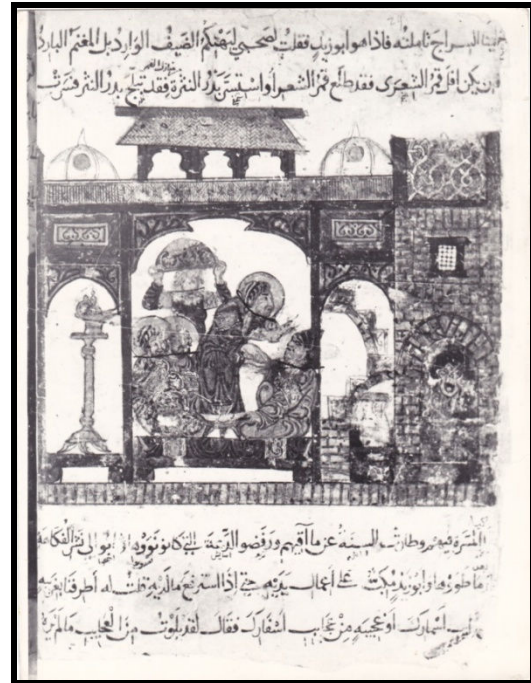 السراج تاملته فاذا هو ابو زيد فقلت لصحبي ليهنكم الضيف الوارد بل المغنم البارد
فان يكن افل قمر الشعرى فقد طلع قمر الشعر او استسر بدر النثرة فقد تبلج بدر النثر فسرت
المسرة فيهم وطارت السنة عن مآقيهم ورفضوا الدعة التي كانوا نووها الفكاهة
ما طووها وابو زيد مكب على اعمال يديه حتى اذا استرفع ما لديه قلت له اطرفنا
اسمارك او عجيبة من عجايب اسفارك فقال لقد بلوت من العجايب ما لم يره